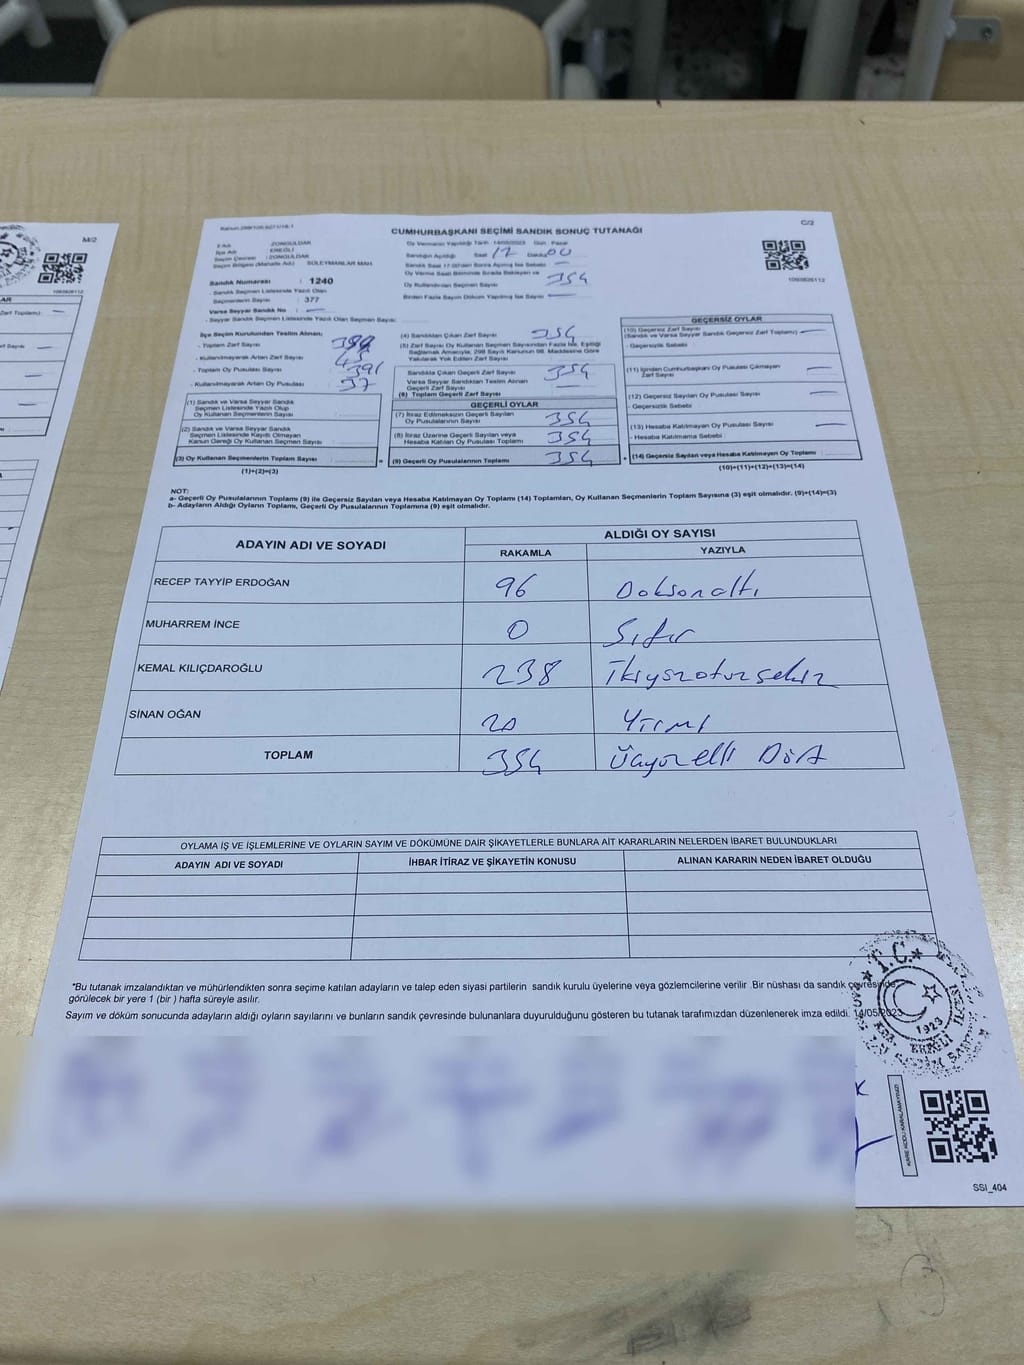 M/2
C/2
Kanun:298/106:6271/18:1
CUMHURBAŞKANI SEÇİMİ SANDIK SONUÇ TUTANAĞI
İl Adı : ZONGULDAK
İlçe Adı : EREĞLİ
Seçim Çevresi : ZONGULDAK
Seçim Bölgesi (Mahalle Adı) : SÜLEYMANLAR MAH
Sandık Numarası : 1240
Sandık Seçmen Listesinde Yazılı Olan
Seçmenlerin Sayısı : 377
Varsa Seyyar Sandık No : —
Seyyar Sandık Seçmen Listesinde Yazılı Olan Seçmen Sayısı :
Oy Vermenin Yapıldığı Tarih : 14/05/2023 Gün : Pazar
Sandığın Açıldığı Saat 17 Dakika 00
Sandık Saat 17:00'den Sonra Açılmış İse Sebebi : —
Oy Verme Saati Bitiminde Sırada Bekleyen ve
Oy Kullandırılan Seçmen Sayısı 354
Birden Fazla Sayım Döküm Yapılmış İse Sayısı —
1093826112
İlçe Seçim Kurulundan Teslim Alınan;
- Toplam Zarf Sayısı
- Kullanılmayarak Artan Zarf Sayısı : 45
- Toplam Oy Pusulası Sayısı : 391
- Kullanılmayarak Artan Oy Pusulası : 37
(1) Sandık ve Varsa Seyyar Sandık
Seçmen Listesinde Yazılı Olup
Oy Kullanan Seçmenlerin Sayısı :
(2) Sandık ve Varsa Seyyar Sandık
Seçmen Listesinde Kayıtlı Olmayan
Kanun Gereği Oy Kullanan Seçmen Sayısı :
(3) Oy Kullanan Seçmenlerin Toplam Sayısı :
(1)+(2)=(3)
(4) Sandıktan Çıkan Zarf Sayısı : 354
(5) Zarf Sayısı Oy Kullanan Seçmen Sayısından Fazla İse, Eşitliği
Sağlamak Amacıyla, 298 Sayılı Kanunun 98. Maddesine Göre
Yakılarak Yok Edilen Zarf Sayısı :
Sandıkta Çıkan Geçerli Zarf Sayısı : 354
Varsa Seyyar Sandıktan Teslim Alınan
Geçerli Zarf Sayısı : —
(6) Toplam Geçerli Zarf Sayısı :
GEÇERLİ OYLAR
(7) İtiraz Edilmeksizin Geçerli Sayılan
Oy Pusulasının Sayısı : 354
(8) İtiraz Üzerine Geçerli Sayılan veya
Hesaba Katılan Oy Pusulası Toplamı : 354
(9) Geçerli Oy Pusulalarının Toplamı : 354
GEÇERSİZ OYLAR
(10) Geçersiz Zarf Sayısı
(Sandık ve Varsa Seyyar Sandık Geçersiz Zarf Toplamı) : —
- Geçersizlik Sebebi :
(11) İçinden Cumhurbaşkanı Oy Pusulası Çıkmayan
Zarf Sayısı : —
(12) Geçersiz Sayılan Oy Pusulası Sayısı : —
- Geçersizlik Sebebi :
(13) Hesaba Katılmayan Oy Pusulası Sayısı : —
- Hesaba Katılmama Sebebi :
(14) Geçersiz Sayılan veya Hesaba Katılmayan Oy Toplamı :
(10)+(11)+(12)+(13)=(14)
NOT:
a- Geçerli Oy Pusulalarının Toplamı (9) ile Geçersiz Sayılan veya Hesaba Katılmayan Oy Toplamı (14) Toplamları, Oy Kullanan Seçmenlerin Toplam Sayısına (3) eşit olmalıdır. (9)+(14)=(3)
b- Adayların Aldığı Oyların Toplamı, Geçerli Oy Pusulalarının Toplamına (9) eşit olmalıdır.
ADAYIN ADI VE SOYADI ALDIĞI OY SAYISI
RAKAMLA YAZIYLA
RECEP TAYYİP ERDOĞAN 96 Doksanaltı
MUHARREM İNCE 0 Sıfır
KEMAL KILIÇDAROĞLU 238 İkiyüzotuzsekiz
SİNAN OĞAN 20 Yirmi
TOPLAM 354 Üçyüzelli Dört
OYLAMA İŞ VE İŞLEMLERİNE VE OYLARIN SAYIM VE DÖKÜMÜNE DAİR ŞİKAYETLERLE BUNLARA AİT KARARLARIN NELERDEN İBARET BULUNDUKLARI
ADAYIN ADI VE SOYADI İHBAR İTİRAZ VE ŞİKAYETİN KONUSU ALINAN KARARIN NEDEN İBARET OLDUĞU
*Bu tutanak imzalandıktan ve mühürlendikten sonra seçime katılan adayların ve talep eden siyasi partilerin sandık kurulu üyelerine veya gözlemcilerine verilir .Bir nüshası da sandık çevresinde
görülecek bir yere 1 (bir ) hafta süreyle asılır.
Sayım ve döküm sonucunda adayların aldığı oyların sayılarını ve bunların sandık çevresinde bulunanlara duyurulduğunu gösteren bu tutanak tarafımızdan düzenlenerek imza edildi. 14/05/2023
T.C.
1923
EREĞLİ
KARE KODU KARALAMAYINIZ!
SSI_404